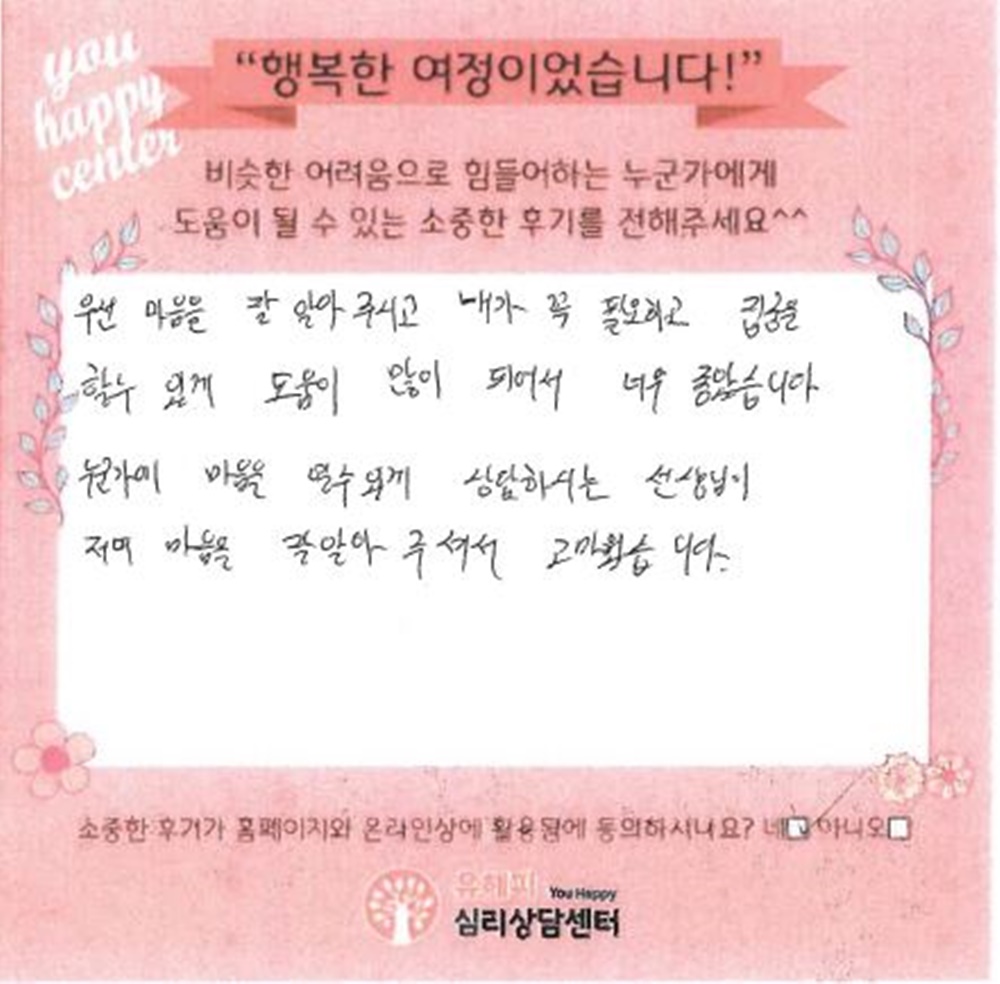 you
happy
center
“행복한 여정이었습니다!”
비슷한 어려움으로 힘들어하는 누군가에게
도움이 될 수 있는 소중한 후기를 전해주세요^^
우선 마음을 잘 알아 주시고 내가 꼭 필요하고 접궁을
할수 있게 도움이 많이 되어서 너무 좋았습니다
누군가에 마음을 열수 있게 상담하시는 선생님이
저며 마음을 잘알아 주셔서 고마웠습니다.
소중한 후기가 홈페이지와 온라인상에 활용됨에 동의하시나요? 네 아니오
유해피 You Happy
심리상담센터